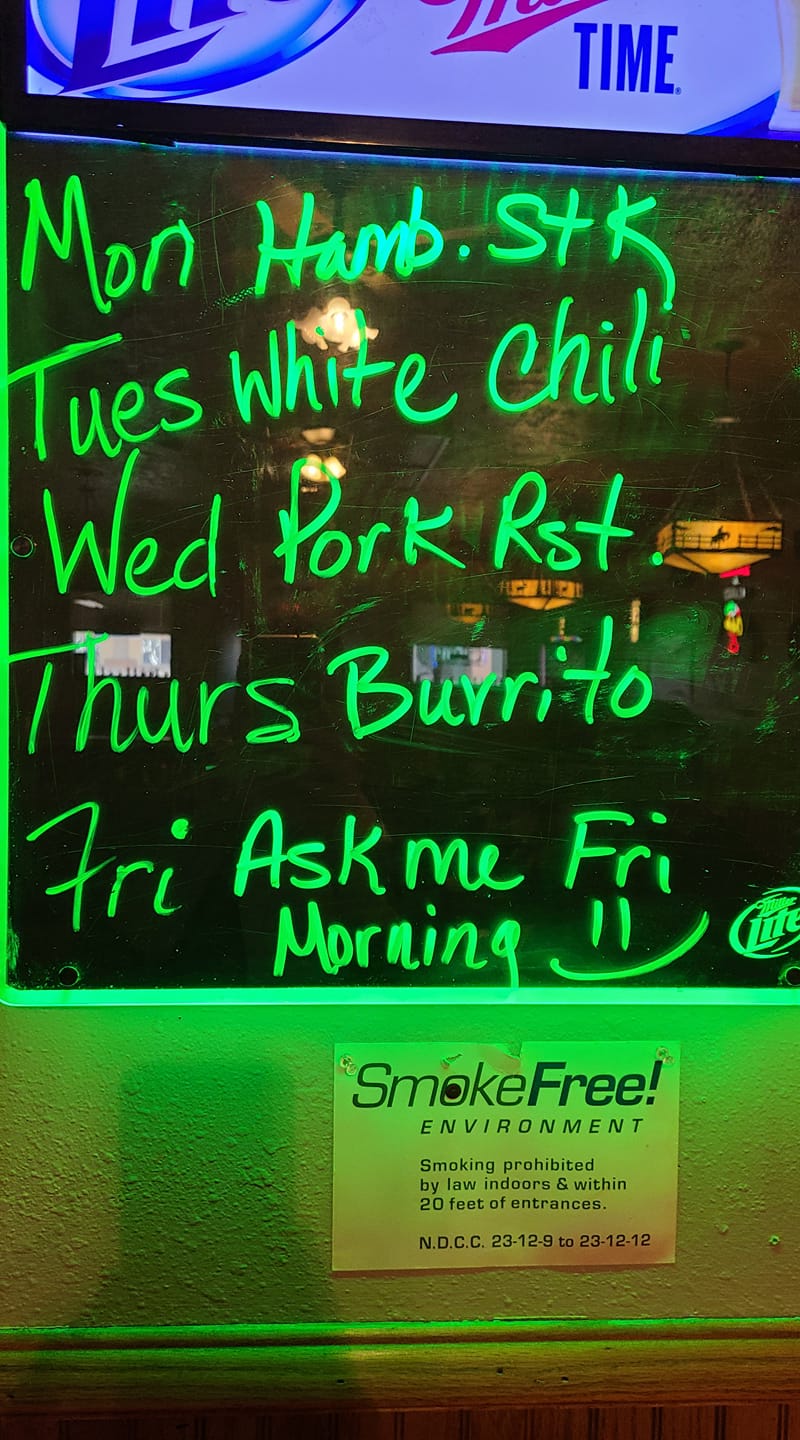 Lite
TIME
Mon Hamb. Stk
Tues White Chili
Wed Pork Rst.
Thurs Burrito
Fri Ask me Fri
Morning
Miller
Lite
SmokeFree!
ENVIRONMENT
Smoking prohibited
by law indoors & within
20 feet of entrances.
N.D.C.C. 23-12-9 to 23-12-12